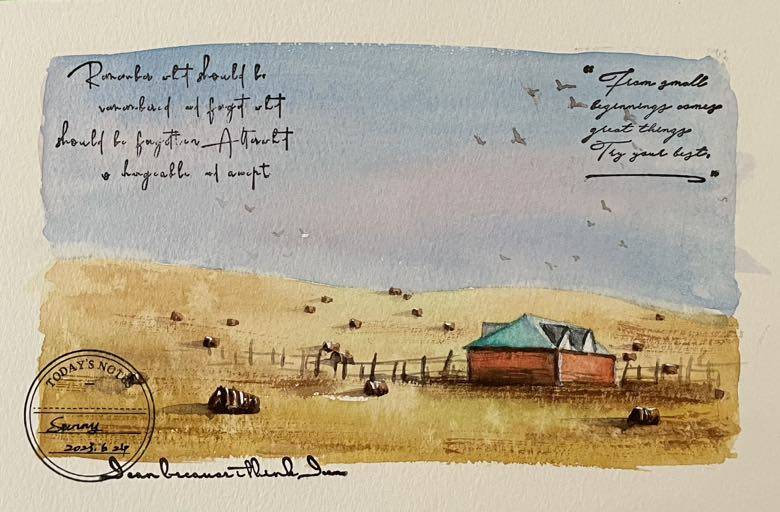 Remember what should be
remembered and forget what
should be forgotten. Alter what
changeable and accept
“From small
beginnings comes
great things
Try your best.”
TODAY'S NOTE
Sunny
2025.6.24
I can because i think I can